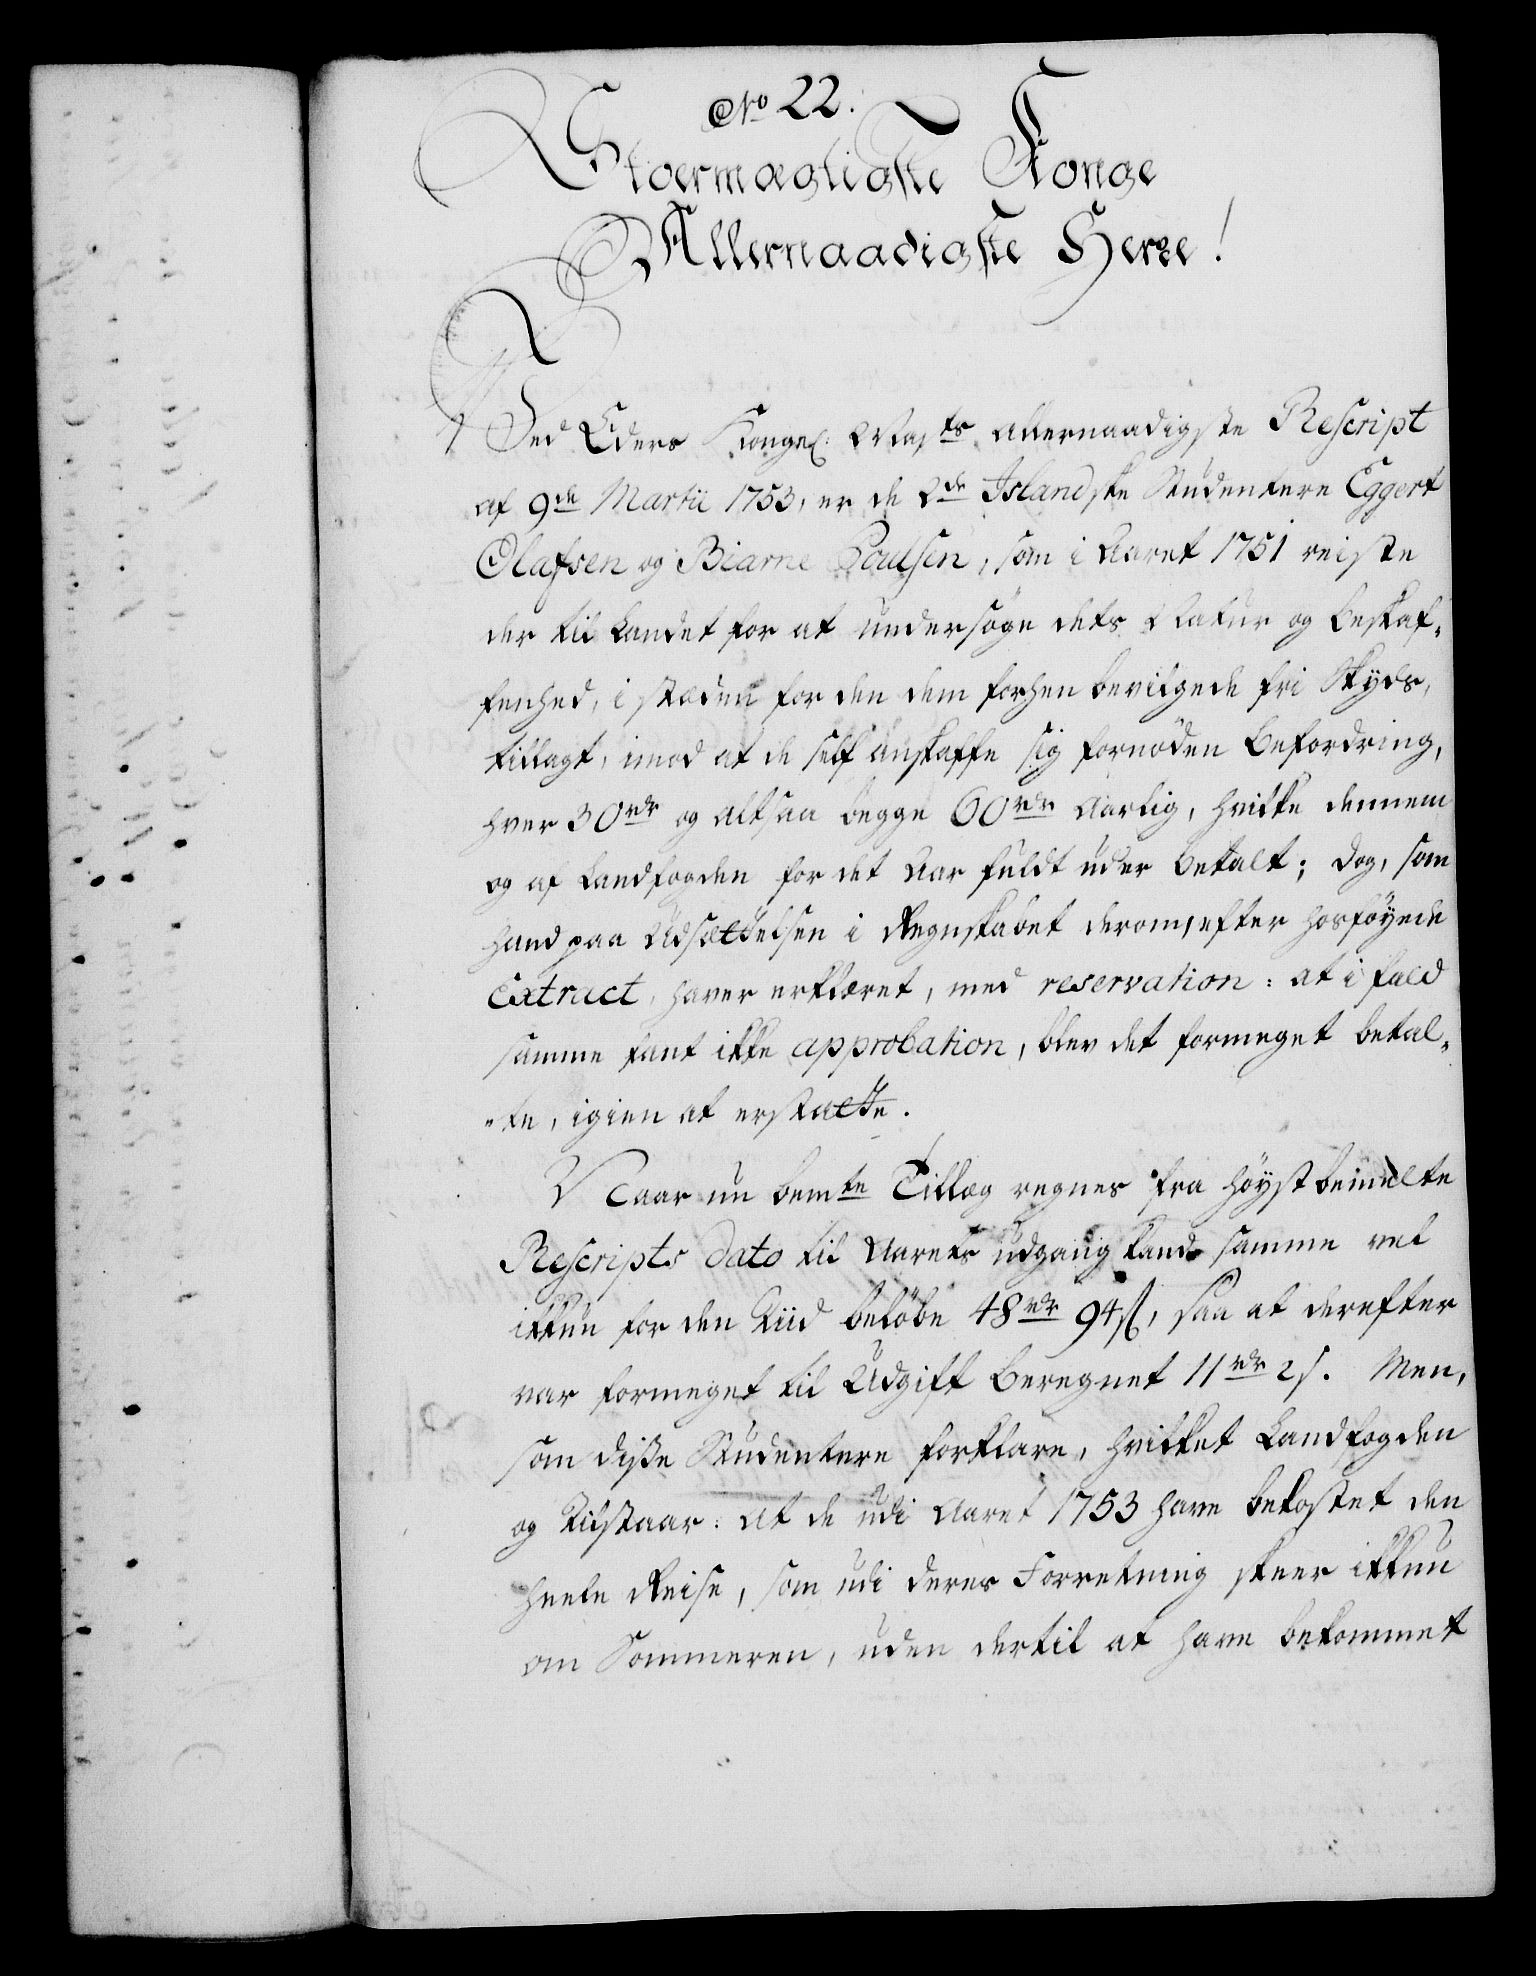 No 22.
Stoermægtigste Konge
Allernaadigste Herre!
Ved Eders Kongel: Mayts allernaadigste Rescript
af 9de Martii 1753, er de 2de Islandske Studentere Eggert
Olafsen og Biarne Poulsen, som i Aaret 1751 reiste
der til Landet for at undersöge dets Natur og beskaf„
fenhed, i stæden for den dem forhen bevilgede fri Skyds,
tillagt, imod at de self anskaffe sig fornöden befordring,
hver 30rdr og altsaa begge 60rdr Aarlig, hvilke dennem
og af Landfogden for det Aar fuldt uder betalt; dog, som
hand paa Udsættelsen i Regnskabet derom, efter hosföyede
Extract, haver erklæret, med reservation: at i fald
samme fant ikke approbation, blev det formeget betal„
„te, igien at erstatte.
Naar nu bemte Tillæg regnes fra höystbemelte
Rescripts dato til Aarets udgang kand samme vel
ikkun for den Tiid belöbe 48rdr 94ß, saa at derefter
var formeget til Udgift beregnet 11rdr 2ß. Men,
som disse Studentere forklare, hvilket Landfogden
og tilstaar: at de udi Aaret 1753 have bekostet den
heele Reise, som udi deres Forretning skeer ikkun
om Sommeren, uden dertil at have bekommet